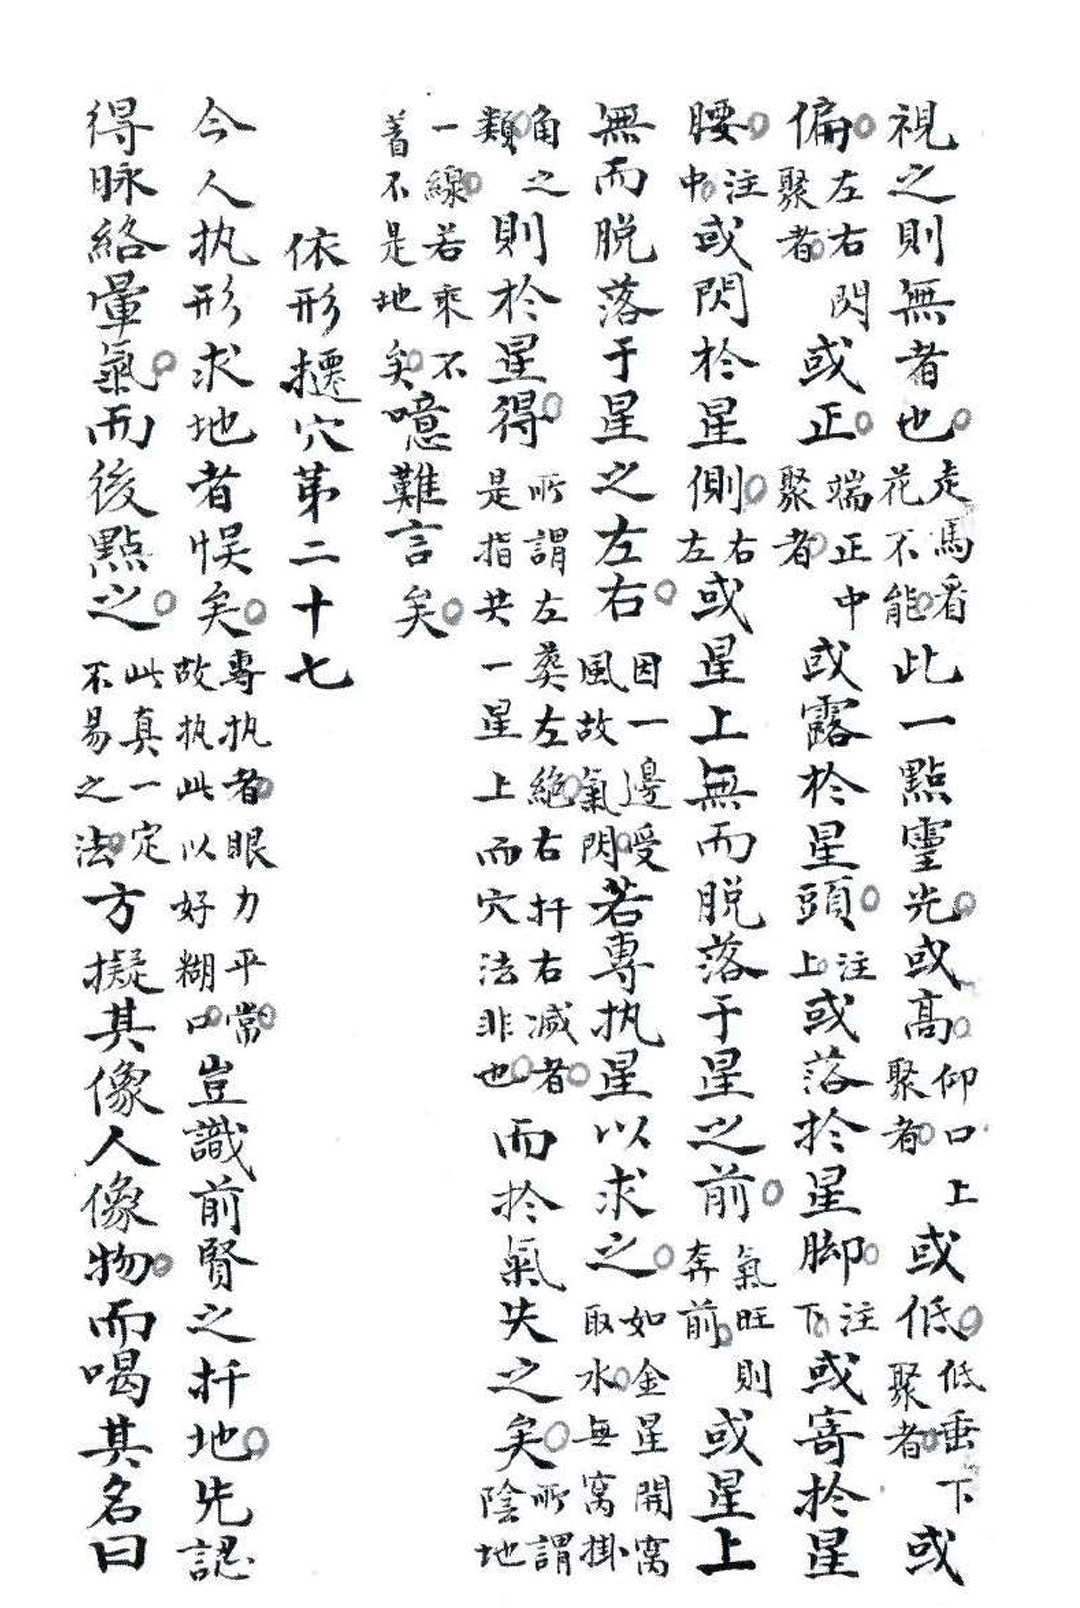 視之則無者也。走馬看花不能。此一點靈光。或高。仰口上聚者。或低。低垂下聚者。或
偏。左右閃聚者。或正。端正中聚者。或露於星頭。注上。或落於星脚。注下。或寄於星
腰。注中。或閃於星側。右左或星上無而脫落于星之前。氣旺則奔前。或星上
無而脫落于星之左右。因一邊受風故氣閃。若專执星以求之。如金星開窩取水。無窩掛
角之類。則於星得。所謂左葬左絶。右扦右减者。是指共一星上而穴法非也。而於氣失之矣。所謂陰地
一線。若乘不着不是地矣。噫難言矣。
依形穴第二十七
今人执形求地者悮矣。專执者。眼力平常。故执此以好糊口。豈識前賢之扦地。先認
得脉絡暈氣。而後點之。此真一定不易之法。方擬其像人像物。而喝其名曰